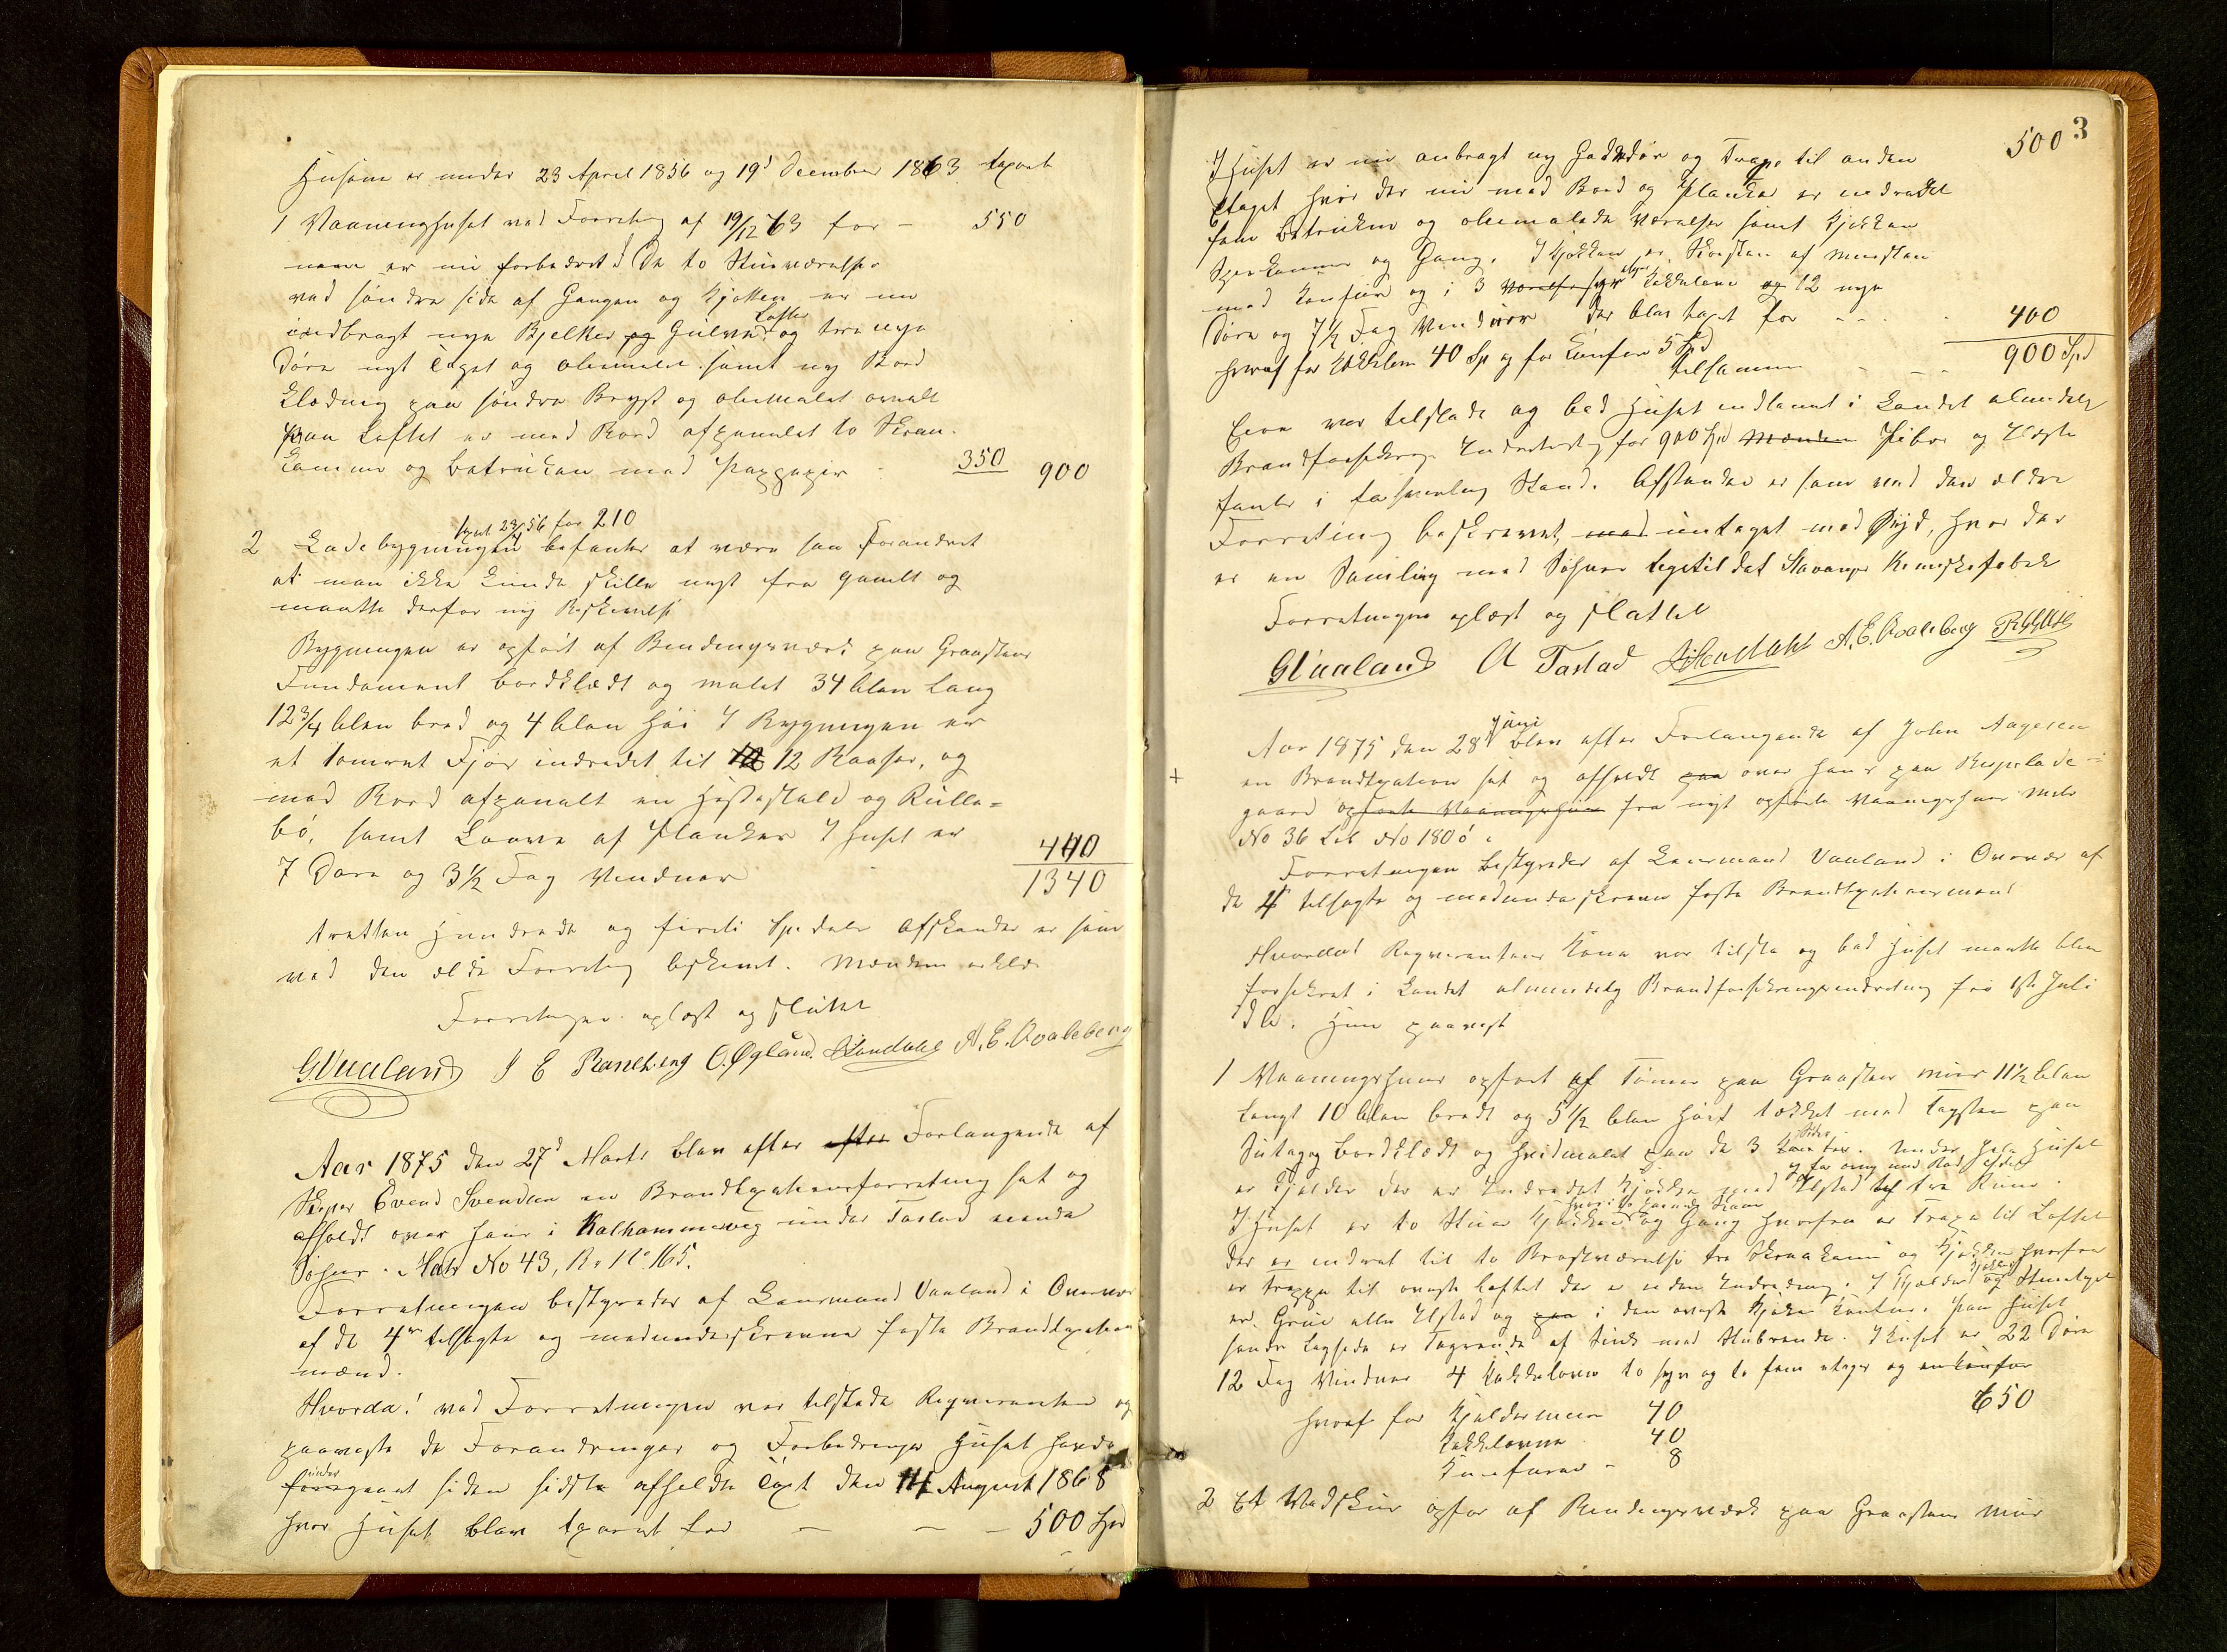 Husene er under 23 April 1856 og 19d December 1863 taxert
1 Vaaningshuset ved Forretng af 19/12 63 for - 550
men er nu forbedret I De to Stueværelser
ved søndre side af Gangen og Kjøkken er nu
indbragt nye Bjelker og Gulve Lofter og tre nye
Døre nyt Taget og oliemalet samt ny Bord
klædning paa søndre Bryst og oliemalet ovenalt
Paa Loftet er med Bord afpanelet to Skraa-
kammer og betrukken med Pappapir 350 900
taxert 23/4 56 for 210
2 Ladebygningen befantes at være saa forandret
at man ikke kunde skille nyt fra gamelt og
maatte derfor ny Beskrivelse
Bygningen er opført af Bindingsverk paa Graastens
Fundament bordklædt og malet 34 Alen lang
12 3/4 Alen bred og 4 Alen høi I Bygningen er
et tømret Fjøs indredet til 12 Baaser, og
med Bord afpanelt en Hestestald og Rulle-
bo, samt Laave af Planker I huset er
7 Døre og 3 1/2 Fag Vinduer 440
1340
tretten Hundrede og firti Spedaler Afstanden er som
ved den ældre Forretng beskrevet. Mændene erklær
Forretngen oplæst og sluttet
G. Vaaland O. Øgland. A. E. Aaleberg
Aar 1875 den 27d Marts blev efter efter Forlangende af
Skiper Svend Svendsen en Brandtaxationsforretning sat og
afholdt over hans i Kalhammeren under Tastad
Søhus. Matr No 43, No 165.
Forretningen bestyredes af Lensmand Vaaland i Overvær
af de 4re tilsagte og medunderskrevne faste Brandtaxations
mænd.
Hvorda! ved Forretningen var tilstede Reqvirenten og
paaviste de Forandringer og Forbedringer Huset havde
undergaaet siden sidste afholdte Taxt den 14 August 1868
hvor Huset blev taxeret for - - - 500 Spd
3
500
I Huset er nu anbragt ny Gadedør og Trape til anden
Etaget hvor der nu med Bord og Planker er indredet
fem Betrukne og oliemalede Værelser samt Kjøkken
Spiskammer og Gang. I Kjøkken er Skorsten af Mursten
med Komfur og i 3 Værelser Kakkelovne og 12 nye
Døre og 7 1/2 Fag Vinduer der blev taxt for - - - 400
hvoraf for Kakkelovne 40 Sp og for Komfur 5 Spd
tilsammen - - - 900 Spd
Eiere var tilstede og bad Huset indlemmet i Landet almindelig
Brandforsikrings Indretning for 900 Spd Mænden Piber og Ildste
fantes i forsvarlig Stand. Afstanden er som ved den ældre
Forretning beskrevet, med untaget mod Syd, hvor der
er en Samling med Søhuse Stavanger Kemiskefabrik
Forretningen oplæst og sluttet
G Vaaland A Tastad A. E. Aaleberg
Aar 1875 den 28 Juni blev efter Forlangende af John Aagesen
en Brandtaxation sat og afholdt paa over hans paa Bispelade-
gaard opførte Vaaningshus fra nyt opførte Vaaningshuus Matr
No 36 Lib No 180
Forretningen bestyredes af Lensmand Vaaland i Overvær af
de 4 tilsagte og medunderskrevne faste Brandtaxationsmænd
Hvorda! Reqvirentens Kone var tilste og bad Huset maatte blive
forsikret i Landet almindelig Brandforsikringsindretning fra 1ste Juli
d.A. Hun paaviste
1 Vaaningshuus opført af Tømer paa Graasten muur 11 1/2 Alen
Langt 10 Alen bredt og 5 1/2 Alen høit tækket med tagsten paa
Sutag og bordklædt og hvidmalet paa de 3 Sider. Under hele Huset
er Kjelder der er indredet Kjøkken med Ildsted
I Huset er to Stuer Kjøkken og Gang hvorfra er Trape til Loftet
der er indredt til to Brystværelse tre Skraakam og Kjøkken hvorfra
er trappe til øverste loftet der er uden Indredning. I Kjelder og Stueetage
er Grue eller Ildsted og i den øverste Kjøken Komfur. Paa Huset
søndre Lagside er Tagrende af Sink med Nedrende. I Huset er 22 Døre
12 Fag Vinduer 4 Kakkelovne to syv og to fem etager og en komfur
650
hvoraf for Kjeldermuur 40
Kakkelovne 40
Komfuren - 8
2 Et Vedskur opfør af Bindingsværk paa Graastens Muur